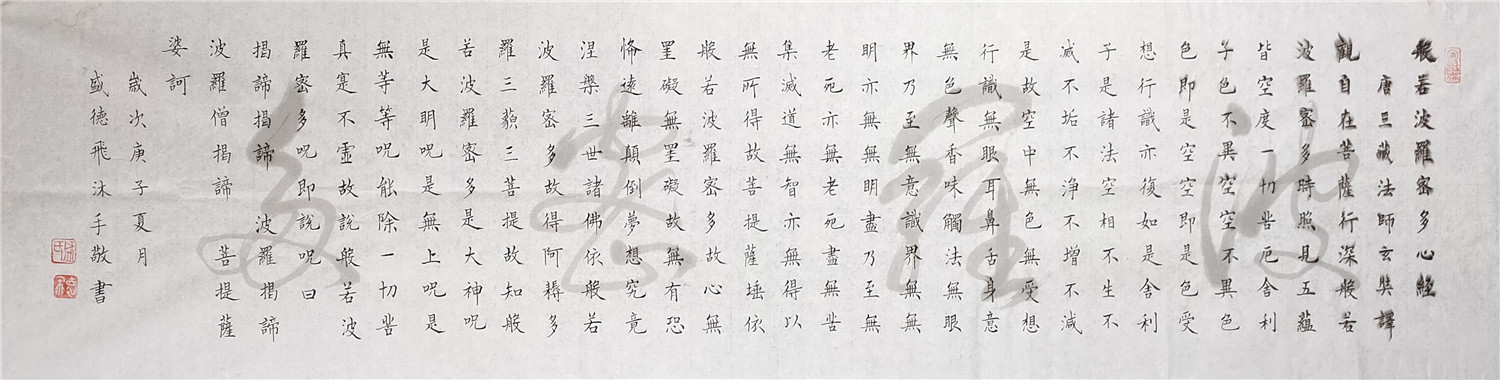 般若波羅密多心經
唐三藏法師玄奘譯
觀自在菩薩行深般若
波羅密多時照見五蘊
皆空度一切苦厄舍利
子色不異空空不異色
色即是空空即是色受
想行識亦復如是舍利
子是諸法空相不生不
滅不垢不淨不增不減
是故空中無色無受想
行識無眼耳鼻舌身意
無色聲香味觸法無眼
界乃至無意識界無無
明亦無無明盡乃至無
老死亦無老死盡無苦
集滅道無智亦無得以
無所得故菩提薩埵依
般若波羅密多故心無
罣礙無罣礙故無有恐
怖遠離顛倒夢想究竟
涅槃三世諸佛依般若
波羅密多故得阿耨多
羅三藐三菩提故知般
若波羅密多是大神呪
是大明呪是無上呪是
無等等呪能除一切苦
真寔不虛故說般若波
羅密多呪即說呪曰
揭諦揭諦 波羅揭諦
波羅僧揭諦 菩提薩
婆訶
歲次庚子夏月
盛德飛沐手敬書
波羅蜜多